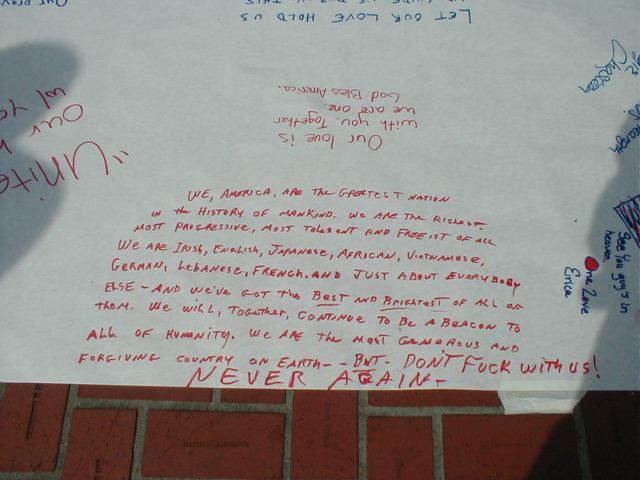 LET OUR LOVE HOLD US
Our love is
with you. Together
we are one.
God Bless America.
"Unite
our
w/
WE, AMERICA, ARE the GREATEST NATION
in the HISTORY OF MANKIND. WE ARE the RICHEST-
MOST PROGRESSIVE, MOST TOLERENT AND FREEIST OF ALL
WE ARE IRISH, ENGLISH, JAPANESE, AFRICAN, VIETNAMESE,
GERMAN, LEBANESE, FRENCH. AND JUST ABOUT EVERYBODY
ELSE - AND WE'VE GOT the BEST AND BRIGHTEST OF ALL OF
them. WE WILL, TOGETHER, CONTINUE TO BE A BEACON TO
ALL OF HUMANITY. WE ARE the MOST GENEROUS AND
FORGIVING COUNTRY ON EARTH-- BUT- DON'T FUCK WITH US!
NEVER AGAIN-
See You guy's in
heaven.
One Love
Erica